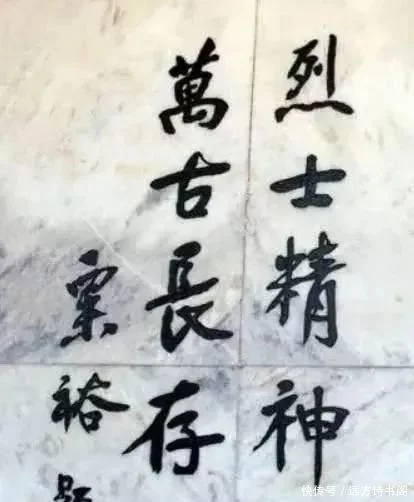 烈士精神
萬古長存
粟裕題
快传号／远方诗书阁